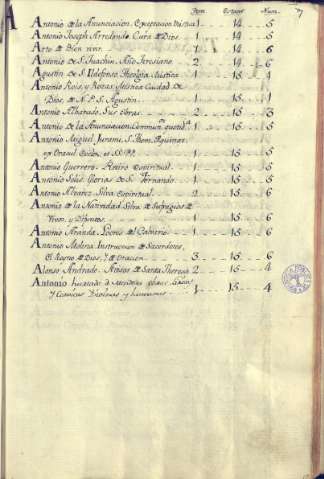 A
Tom. Estant. Num.
Antonio de la Anunciacion. Excepcion Mistica 1 14 5
Antonio Joseph Arredondo. Cura de Dios 1 14 5
Arte de Bien vivir 1 14 6
Antonio de S. Joachin. Año Teresiano 2 14 6
Agustin de S. Ildefonso. Theologia Mistica 1 15 4
Antonio Rois, y Rozas. Mistica Ciudad de
Dios, de N. P. S. Agustin 1 15 1
Antonio Alvarado. Sus Obras 2 15 3
Antonio de la Anunciacion 1 15 5
Antonio Miguel S. Thom. Aquinat.
1 15 5
Antonio Guerrero. Retiro Espiritual 1 15 5
Antonio Glorias de S. Fernando 1 15 5
Antonio Alvarez. Silva Espiritual 2 15 6
Antonio de la Natividad. Silva de Sufragios de
Vivos, y Difuntos 1 15 6
Antonio Aranda. Loores del Calvario 1 15 6
Antonio Molina. Instruccion de Sacerdotes,
El Rosario de Dios, y de Oracion 3 15 6
Alonso Andrade. Avisos de Santa Theresa 2 15 4
Antonio hurtado de Mendoza obras
y Comicas Divinas y humanas 1 15 4